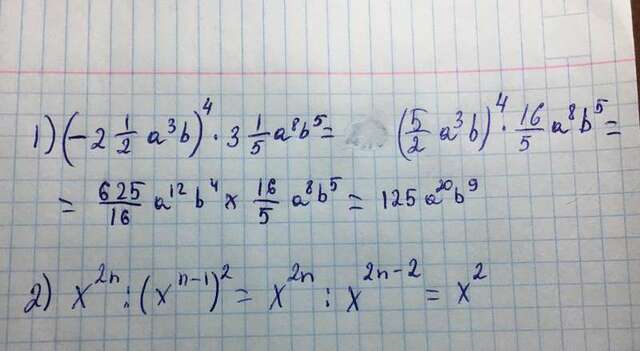 1) (-2 1/2 a³b)⁴ · 3 1/5 a⁸b⁵ = (5/2 a³b)⁴ · 16/5 a⁸b⁵ =
= 625/16 a¹²b⁴ × 16/5 a⁸b⁵ = 125a²⁰b⁹
2) x²ⁿ : (xⁿ⁻¹)² = x²ⁿ : x²ⁿ⁻² = x²